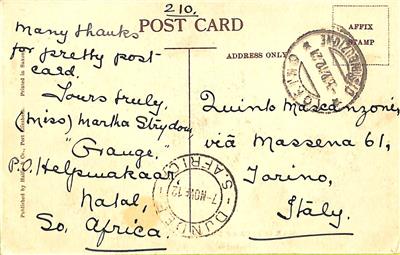 210.
POST CARD
AFFIX
STAMP
ADDRESS ONLY
Many thanks
for pretty post-
card.
Yours truly,
(Miss) Martha Strydom
"Grange"
P.O. Helpmakaar,
Natal,
So. Africa.
Quinto Mascanzoni,
viā Massena 61,
Torino,
Italy.
DUNDEE
S. AFRICA
7 NOV 12
TORINO
Published by
Printed in